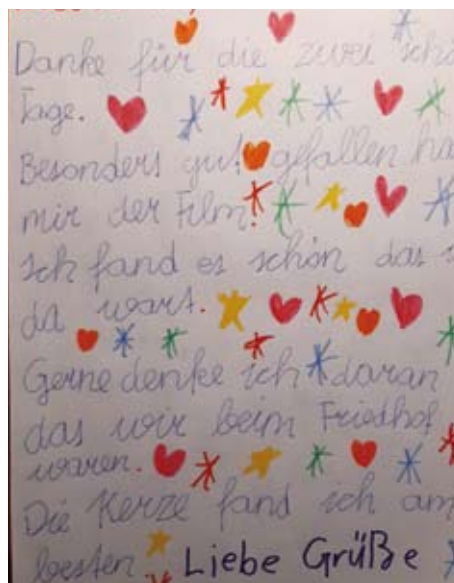 Danke für die zwei schö
Tage.
Besonders gut gefallen ha
mir der Film.
Ich fand es schön das w
da wart.
Gerne denke ich daran
das wir beim Friedhof
waren.
Die Kerze fand ich am
besten.
Liebe Grüße